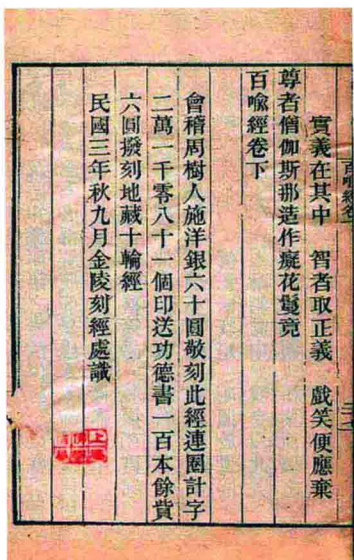 實義在其中　智者取正義　戲笑便應棄
尊者僧伽斯那造作癡花鬘竟
百喩經卷下
會稽周樹人施洋銀六十圓敬刻此經連圈計字
二萬一千零八十一個印送功德書一百本餘貲
六圓撥刻地藏十輪經
民國三年秋九月金陵刻經處識
百喩經卷